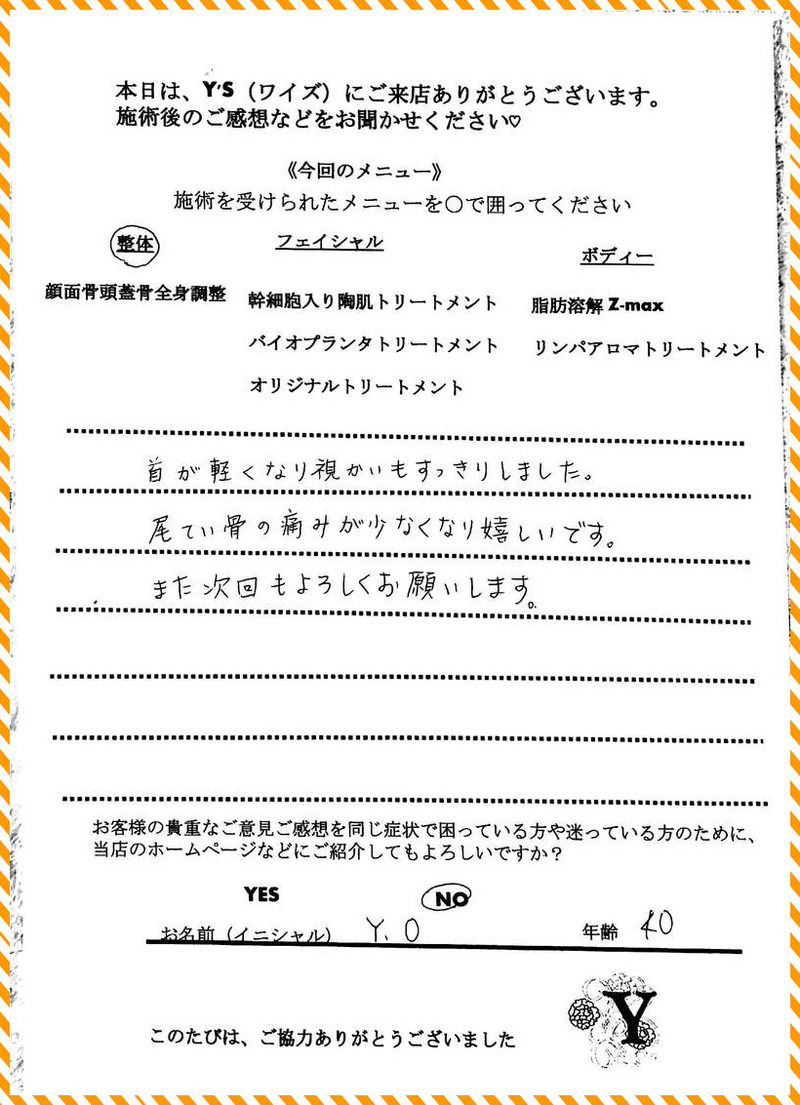 本日は、Y'S（ワイズ）にご来店ありがとうございます。
施術後のご感想などをお聞かせください♡
《今回のメニュー》
施術を受けられたメニューを〇で囲ってください
整体
フェイシャル
ボディー
顔面骨頭蓋骨全身調整
幹細胞入り陶肌トリートメント
脂肪溶解 Z-max
バイオプランタトリートメント
リンパアロマトリートメント
オリジナルトリートメント
首が軽くなり視かいもすっきりしました。
尾てい骨の痛みが少なくなり嬉しいです。
また次回もよろしくお願いします。
お客様の貴重なご意見ご感想を同じ症状で困っている方や迷っている方のために、
当店のホームページなどにご紹介してもよろしいですか？
YES NO
お名前（イニシャル） Y.O 年齢 40
Y
このたびは、ご協力ありがとうございました